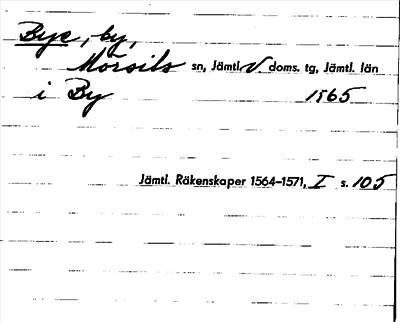 Bye, by,
Mörsils sn, Jämtl. V doms. tg, Jämtl. län
i By 1565
Jämtl. Räkenskaper 1564–1571, I s. 105